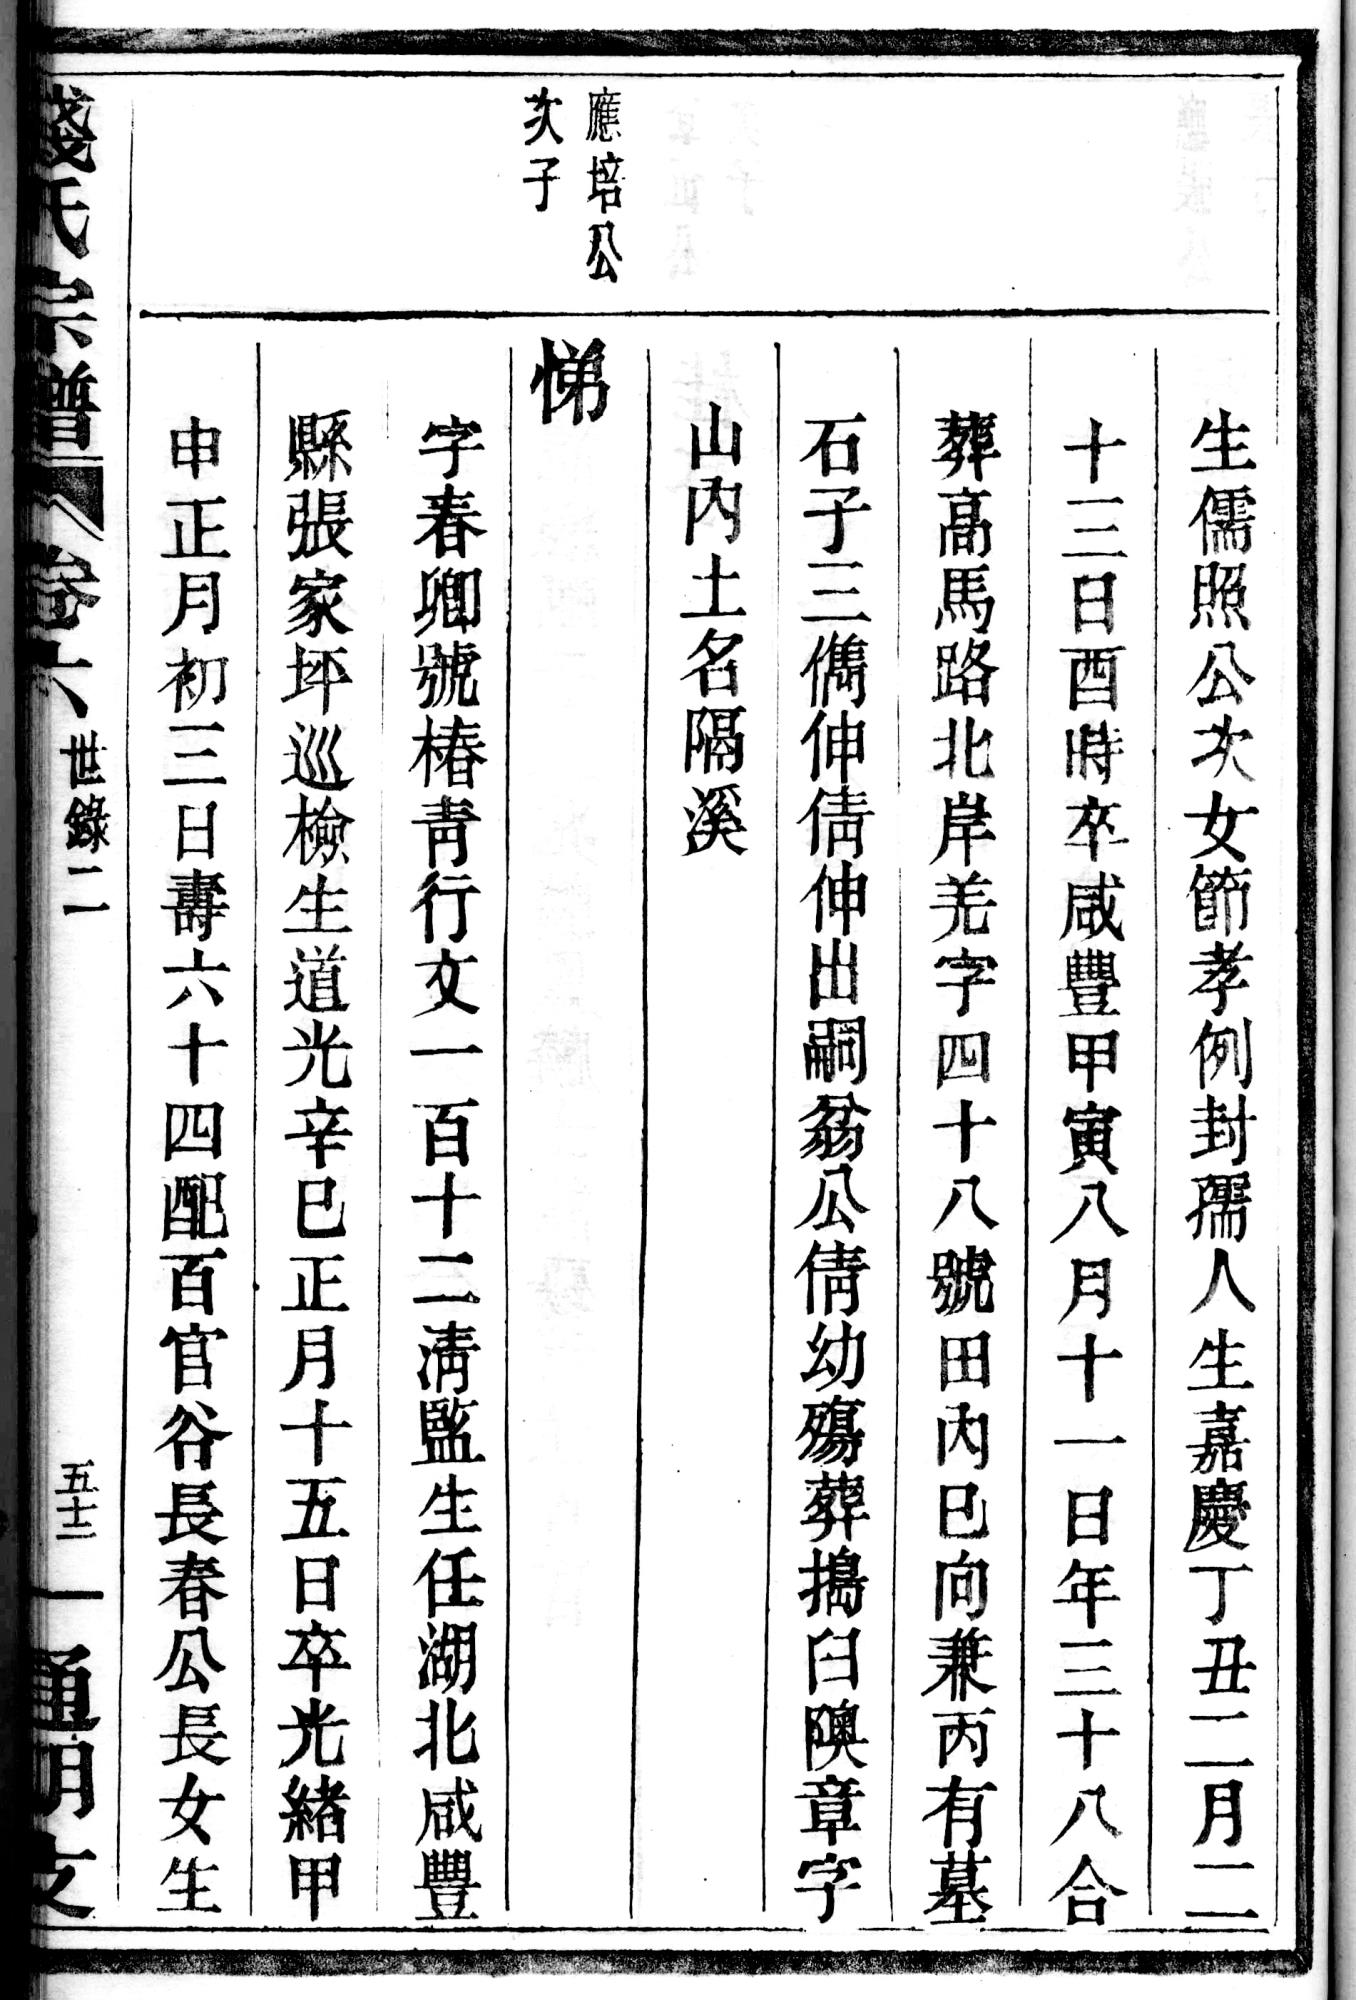 生儒照公次女節孝例封孺人生嘉慶丁丑二月二
十三日酉時卒咸豐甲寅八月十一日年三十八合
葬高馬路北岸羌字四十八號田內巳向兼丙有墓
石子三儁伸倩伸出嗣翁公倩幼殤葬搗臼隩章字
山內土名隔溪
應培公
次子
悌
字春卿號椿靑行文一百十二淸監生任湖北咸豐
縣張家坪巡檢生道光辛巳正月十五日卒光緖甲
申正月初三日壽六十四配百官谷長春公長女生
錢氏宗譜
卷六
世錄二
五十二
通明支